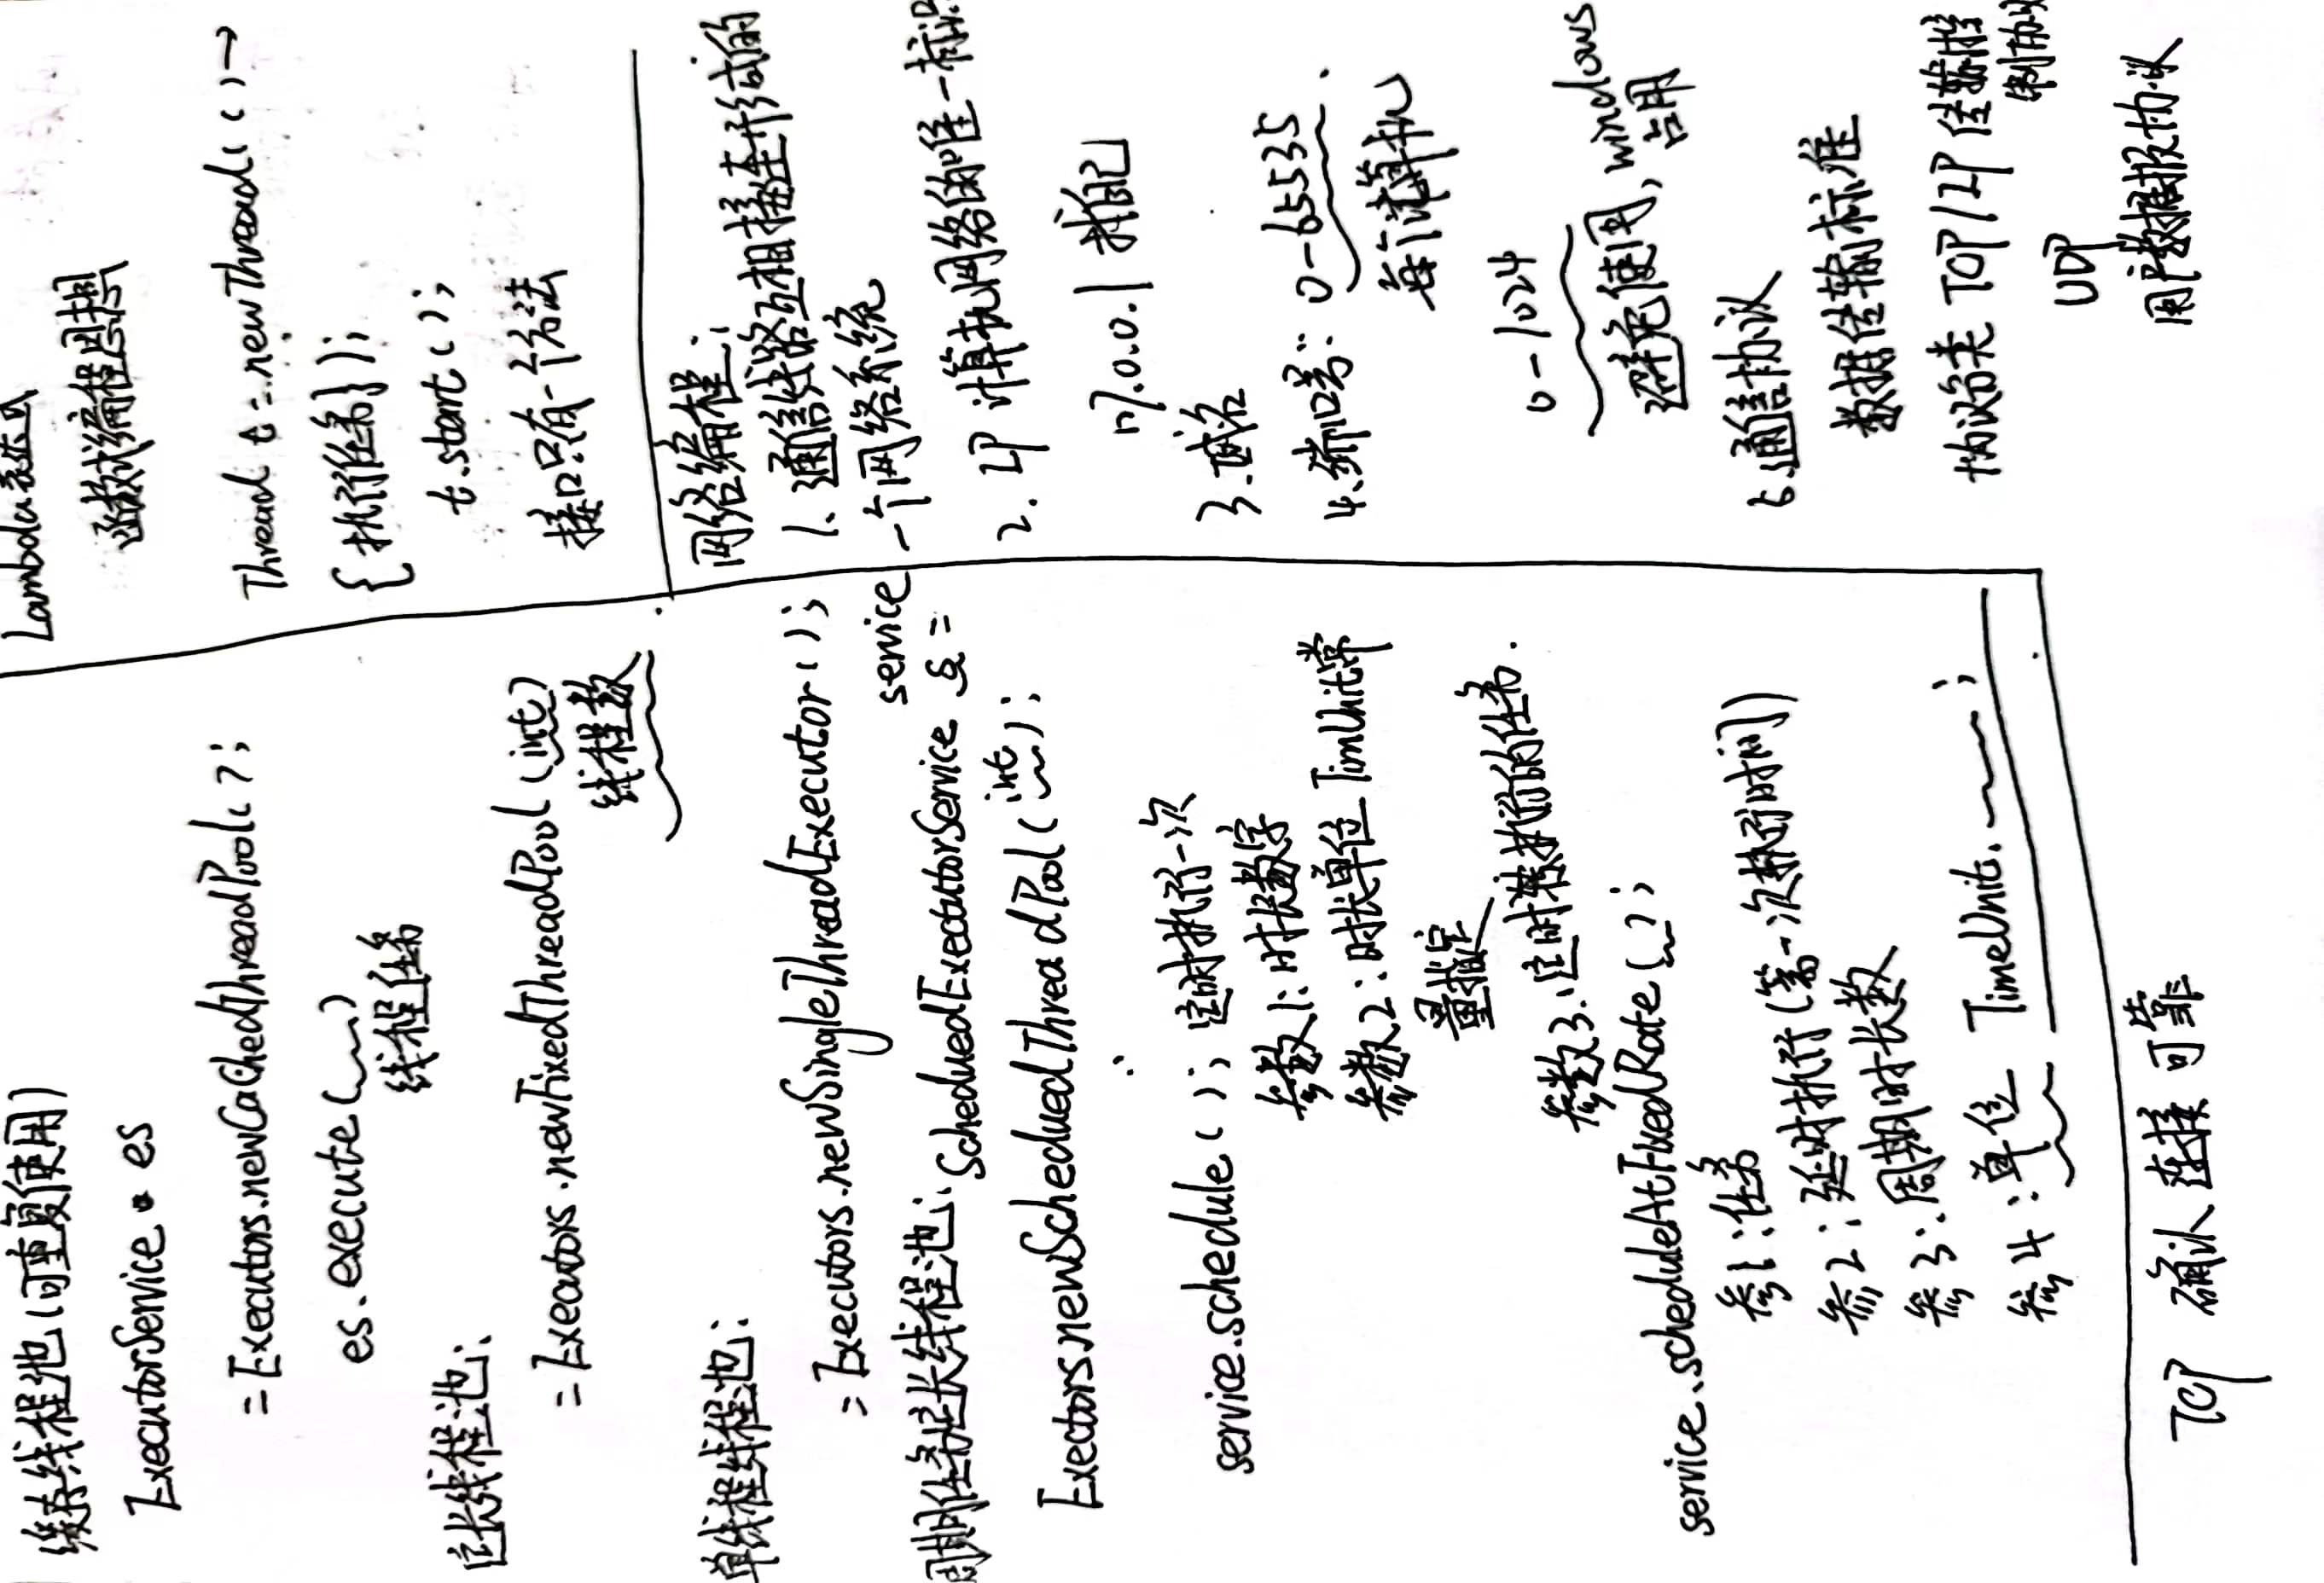 缓存线程池(可重复使用)
ExecutorService es
= Executors.newCachedThreadPool( );
es.execute( )
线程任务
定长线程池:
= Executors.newFixedThreadPool(int)
线程数
单线程线程池:
= Executors.newSingleThreadExecutor( );
周期任务定长线程池:
ScheduedExectutorService service =
Exectors.newScheduedThreadPool(int);
service.schedule( ); 定时执行一次
参数1:时长数字
参数2:时长单位 TimUnit常
量指定
参数3:定时执行的任务.
service.scheduleAtFixedRate( );
参1:任务
参2:延时执行(第一次执行时间)
参3:周期时长数
参4:单位 TimeUnit. ;
TCP 确认 连接 可靠
Lambda表达式
函数式编程思想
Thread t = new Thread(( )→
{执行任务});
t.start( );
接口只有一个方法
网络编程:
1、通信线路互相接连形成的
一个网络系统
2. IP 计算机网络的唯一标识
127.0.0.1 找自己
3.域名
4、端口号: 0-65535.
每个计算机
0-1024
避免使用,windows
占用
5.通信协议
数据传输标准
协议分类 TCP/IP 传输控
制协议
UDP
用户数据报协议